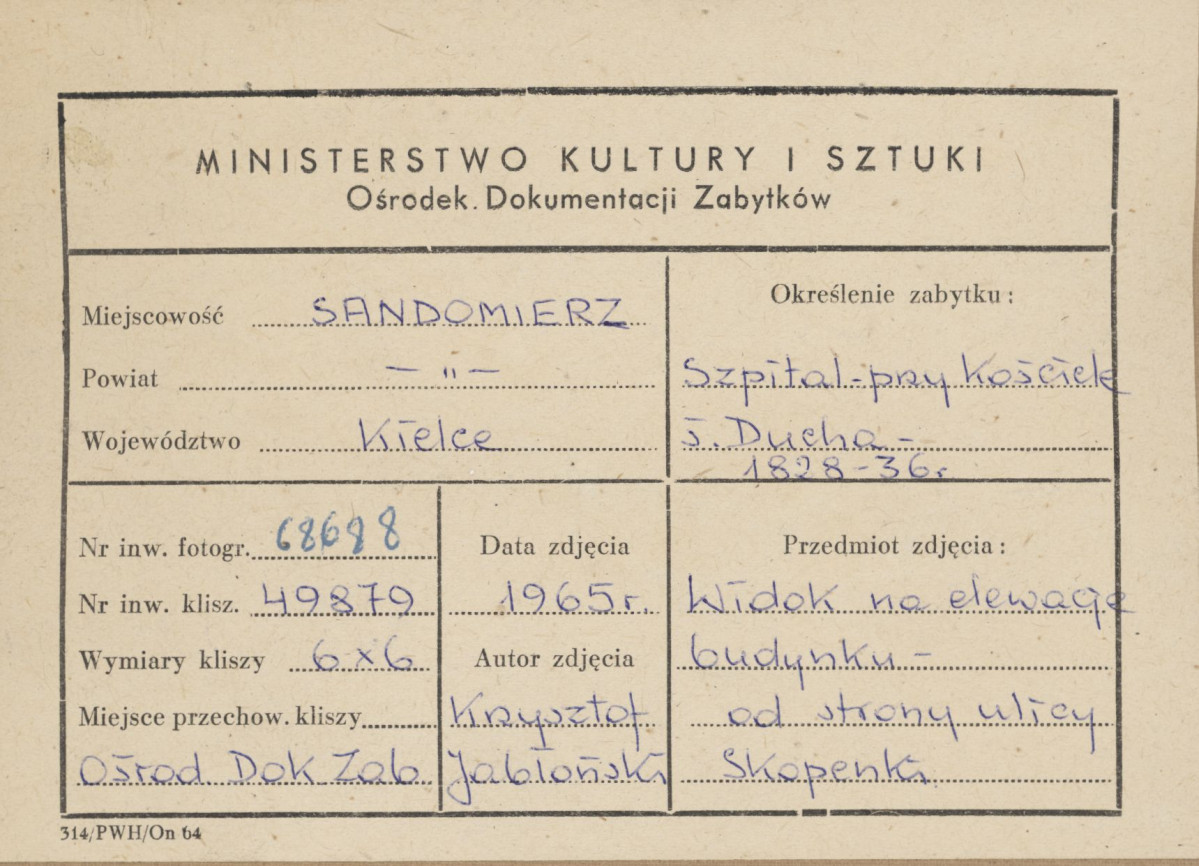 MINISTERSTWO KULTURY I SZTUKI
Ośrodek Dokumentacji Zabytków
Miejscowość SANDOMIERZ
Powiat — " —
Województwo Kielce
Określenie zabytku:
Szpital - przy Kościele
ś. Ducha -
1828-36r.
Nr inw. fotogr. 68688
Nr inw. klisz. 49879
Wymiary kliszy 6x6
Miejsce przechow. kliszy
Ośrod Dok Zab
Data zdjęcia
1965r.
Autor zdjęcia
Krzysztof
Jabłoński
Przedmiot zdjęcia:
Widok na elewację
budynku -
od strony ulicy
Skopenki
314/PWH/On 64